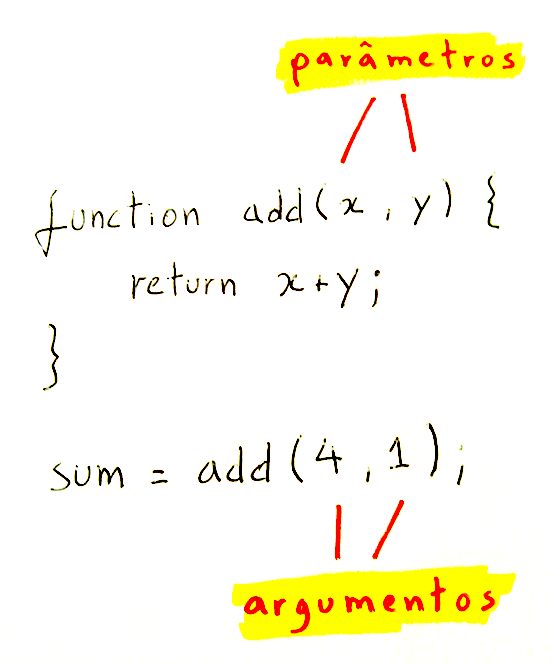 parâmetros
function add(x, y) {
return x+y;
}
sum = add(4,1);
argumentos